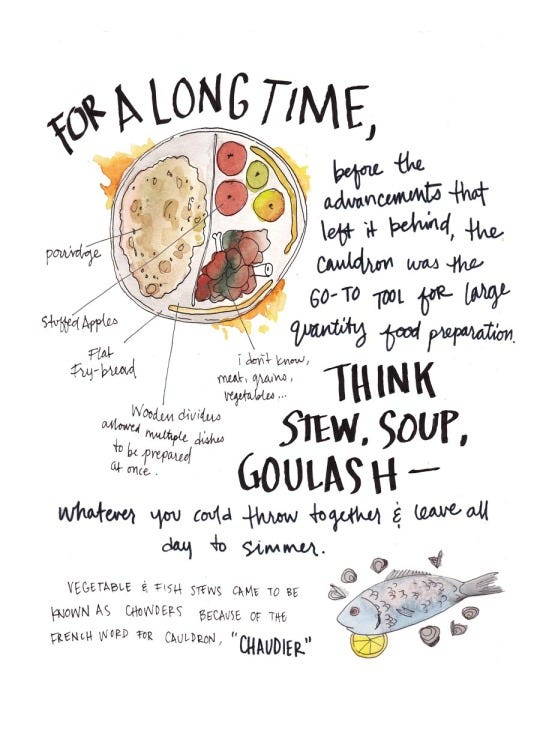 FOR A LONG TIME,
before the
advancements that
left it behind, the
cauldron was the
GO-TO TOOL FOR large
quantity food preparation.
porridge
Stuffed Apples
Flat
Fry-bread
Wooden dividers
allowed multiple dishes
to be prepared
at once.
i don't know,
meat, grains,
vegetables...
THINK
STEW, SOUP,
GOULASH —
whatever you could throw together & leave all
day to simmer.
VEGETABLE & FISH STEWS CAME TO BE
KNOWN AS CHOWDERS BECAUSE OF THE
FRENCH WORD FOR CAULDRON, "CHAUDIER"